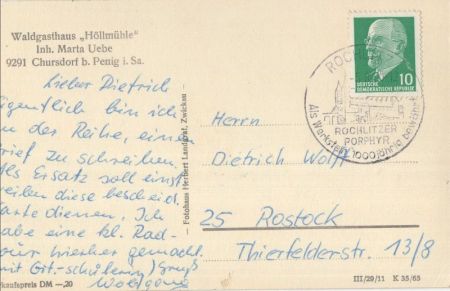 Waldgasthaus „Höllmühle“
Inh. Marta Uebe
9291 Chursdorf b. Penig i. Sa.
Lieber Dietrich
eigentlich bin ich
an der Reihe, einen
Brief zu schreiben.
Als Ersatz soll einst-
weilen diese bescheid.
Karte dienen. Ich
habe eine kl. Rad-
tour hierher gemacht.
mit Git.-schülerin, Gruß
Wolfgang
Verkaufspreis DM —,20
Fotohaus Herbert Landgraf, Zwickau
10
DEUTSCHE
DEMOKRATISCHE REPUBLIK
ROCHLITZ
ROCHLITZER
PORPHYR
Als Werkstein 1000 jährig bewährt
Herrn
Dietrich Wolff
25 Rostock
Thierfelderstr. 13/8
III/29/11 K 35/65